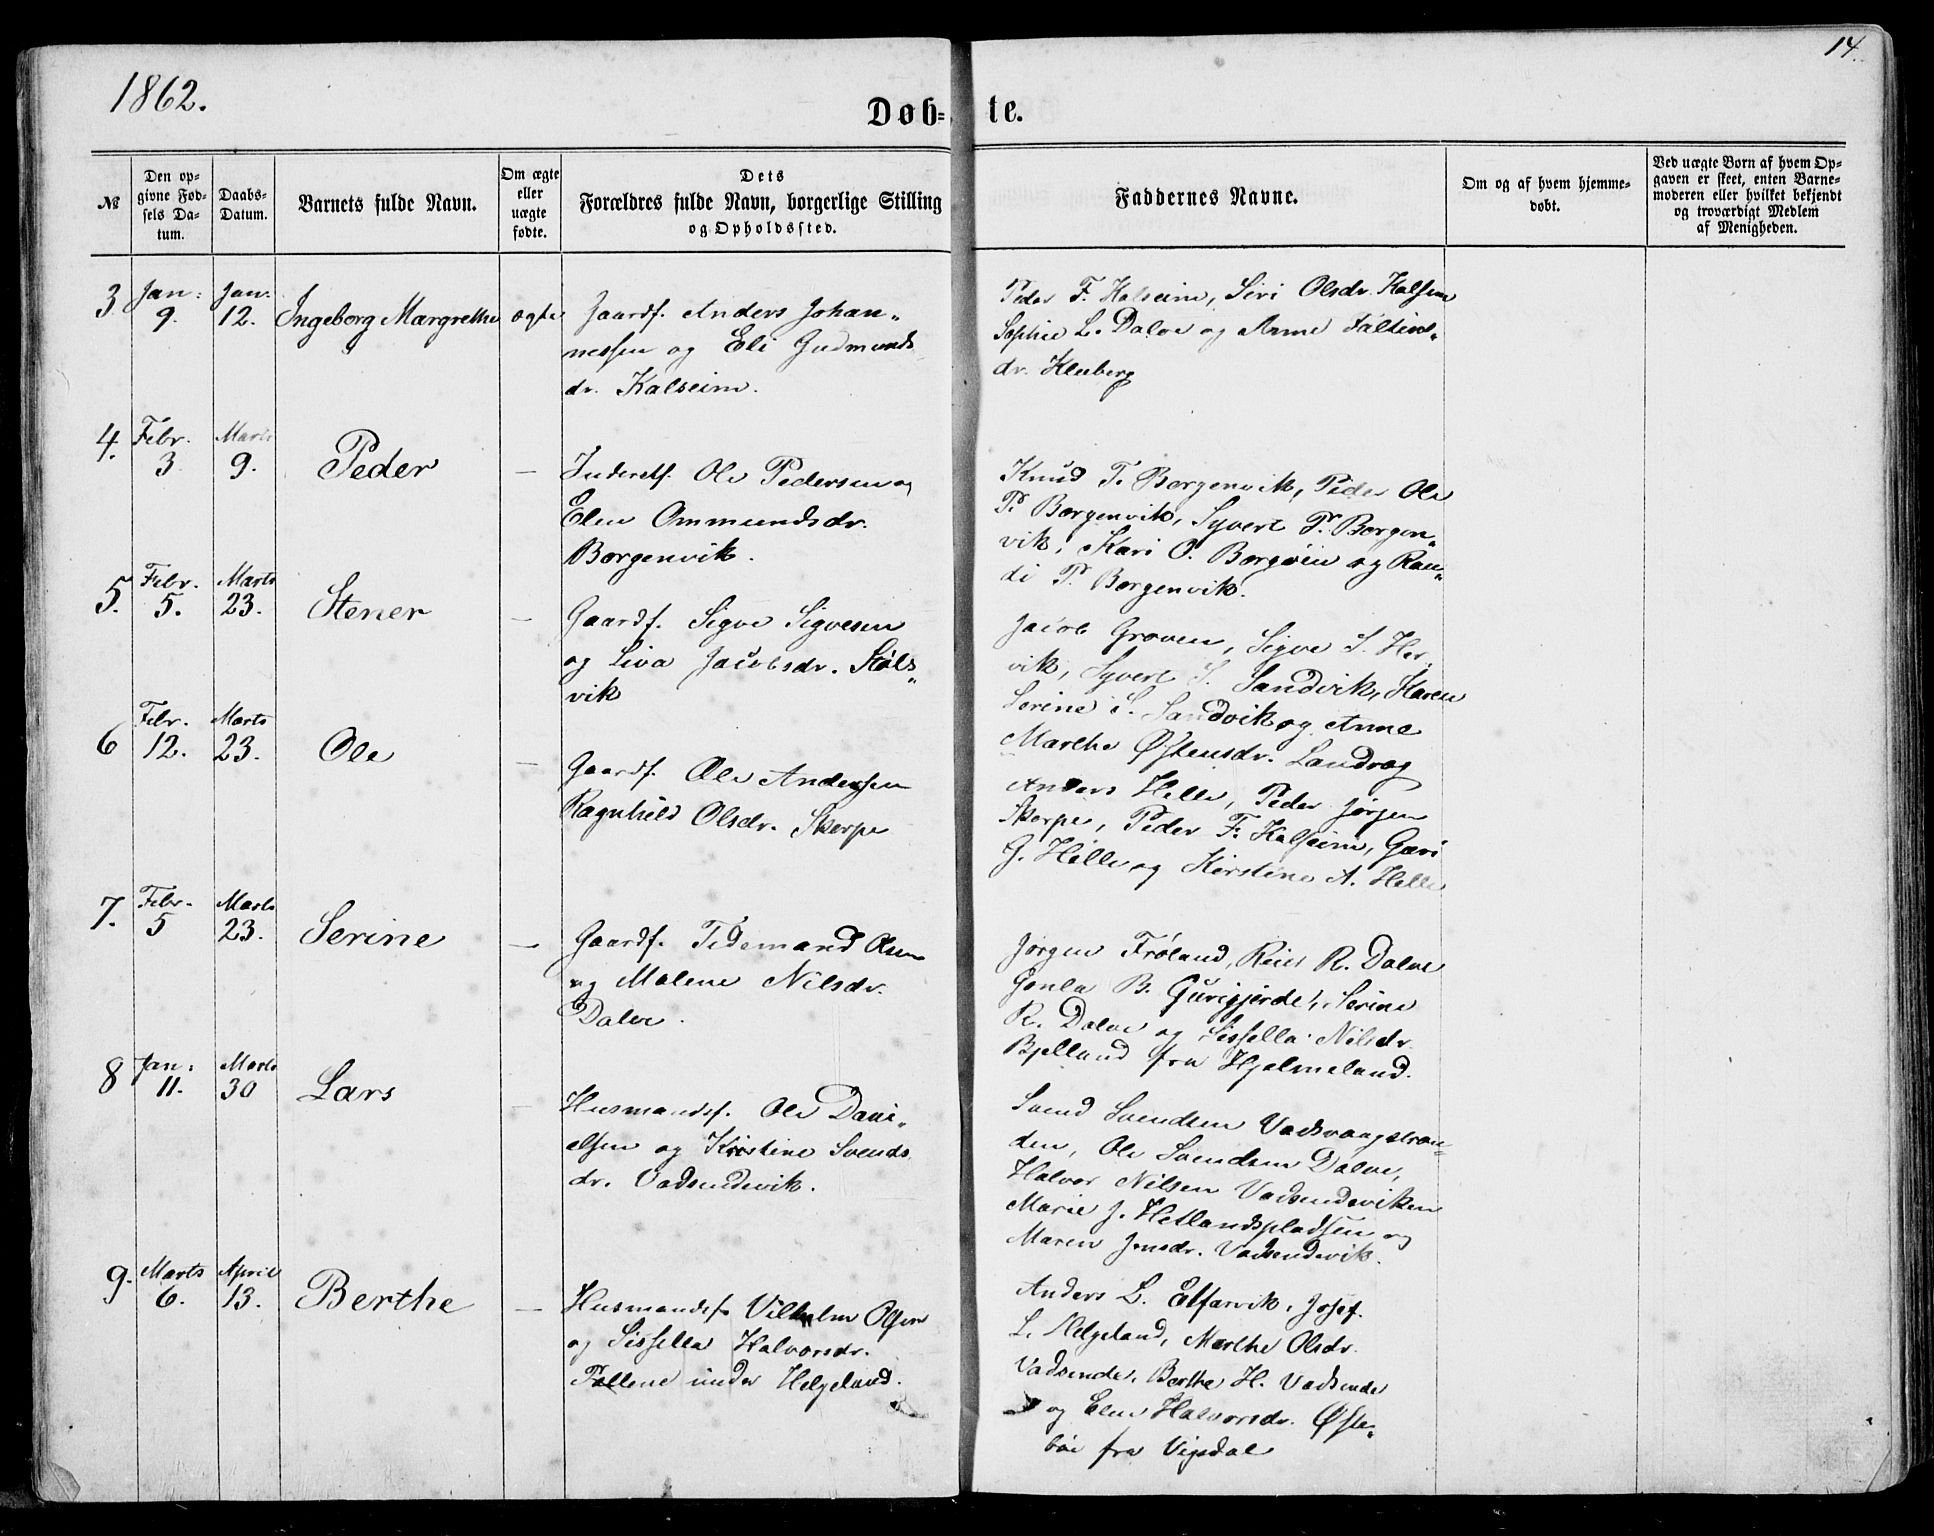 1862.
14.
Døb-
te.
№
Den op-
givne Fød-
sels Da-
tum.
Daabs-
Datum.
Barnets fulde Navn.
Om ægte
eller
uægte
fødte.
Dets
Forældres fulde Navn, borgerlige Stilling
og Opholdssted.
Faddernes Navne.
Om og af hvem hjemme-
døbt.
Ved uægte Børn af hvem Op-
gaven er skeet, enten Barne-
moderen eller hvilket bekjendt
og troværdigt Medlem
af Menigheden.
3. Jan: 9. Jan: 12. Ingeborg Margrethe ægte
Gaardf. Anders Johan-
nessen og Eli Gudmunds
dr. Kalseim.
Peder F. Kalseim, Siri Olsdr. Kalseim
Sophie L. Dalve og Anne Faltins-
dr. Kleiberg
4. Febr. 3 Marts 9. Peder —
Inderstf. Ole Pedersen og
Elen Ommundsdr.
Borgenvik.
Knud T. Borgenvik, Peder Ole
P. Borgenvik, Syvert P. Borgen-
vik, Kari O. Borgøien og Ran-
di P. Borgenvik.
5. Febr. 5. Marts 23. Stener —
Gaardf. Sigve Sigvesen
og Liva Jacobsdr. Støls-
vik
Jacob Groven, Sigve S. Her-
vik, Syvert S. Sandvik, Karen
Serine S. Sandvik og Anne
Marthe Østensdr. Landrog
6 Febr. 12. Marts 23. Ole —
Gaardf. Ole Andersen
Ragnhild Olsdr. Skerpe
Anders Helle, Peder Jørgen
Skerpe, Peder F. Kalseim, Guri
G. Helle og Kirstine A. Helle
7. Febr. 5 Marts 23. Serine —
Gaardf. Tidemand Olsen
og Malene Nilsdr.
Dalve.
Jørgen Frøland, Reier R. Dalve
Gonla B. Gurigjerde, Serine
R. Dalve og Sissella Nilsdr.
Bjelland fra Hjelmeland.
8 Jan: 11. Marts 30 Lars —
Husmandsf. Ole Dani-
elsen og Kirstine Svends
dr. Vadsendevik.
Svend Svendsen Vadsvaagstran-
den, Ole Svendsen Dalve,
Halvor Nilsen Vadsendeviken
Marie J. Hetlandspladsen og
Maren Jensdr. Vadsendevik.
9. Marts 6. April 13. Berthe —
Husmandsf. Vilhelm Olsen
og Sissella Halvorsdr.
Fallene under Helgeland.
Anders L. Elfarvik, Josef
L. Helgeland, Marthe Olsdr.
Vadsende, Berthe H. Vadsende
og Elen Halvorsdr. Øste-
bøe fra Vigedal